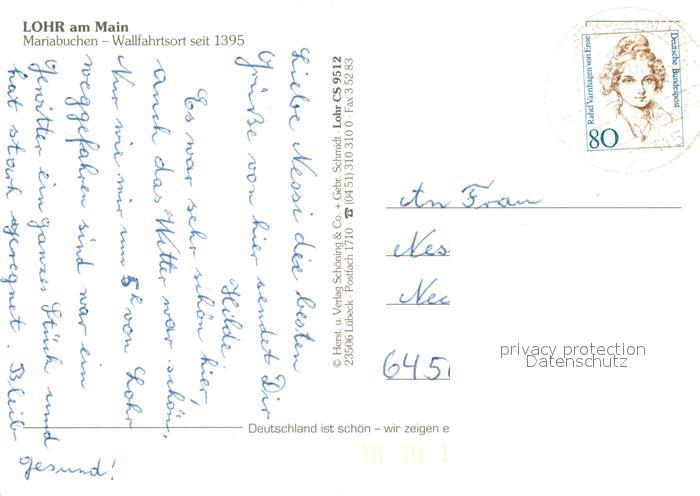 LOHR am Main
Mariabuchen – Wallfahrtsort seit 1395
Liebe Nessi die besten
Grüße von hier sendet Dir
Hilde
Es war sehr schön hier,
auch das Wetter war schön,
Nur wie mir um 5h von Lohr
weggefahren sind war ein
Gewitter ein ganzes Stück und
hat stark geregnet. Bleib
gesund!
© Herst. u. Verlag Schöning & Co. + Gebr. Schmidt · Lohr CS 9512
23506 Lübeck · Postfach 1710 · ☎ (04 51) 310 310 0 · Fax 3 52 83
Rahel Varnhagen von Ense
Deutsche Bundespost
80
An Frau
Nes
Nec
645
privacy protection
Datenschutz
Deutschland ist schön – wir zeigen e